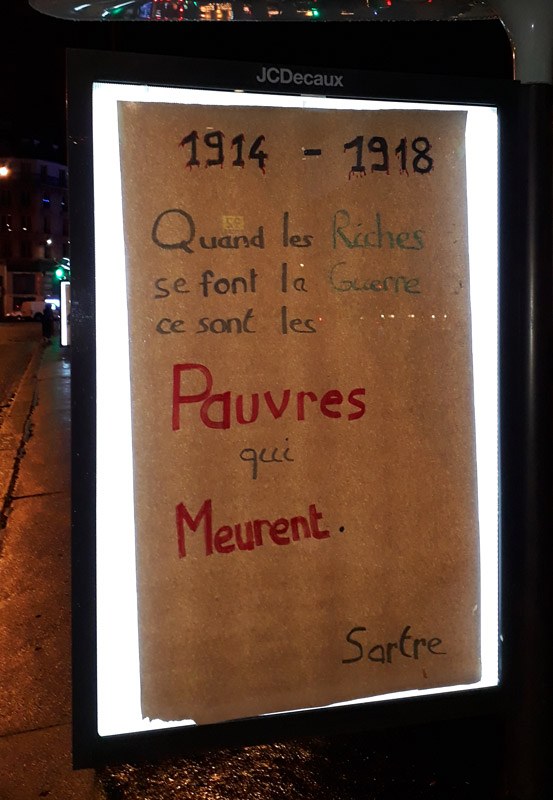 JCDecaux
1914 - 1918
Quand les Riches
se font la Guerre
ce sont les
Pauvres
qui
Meurent.
Sartre